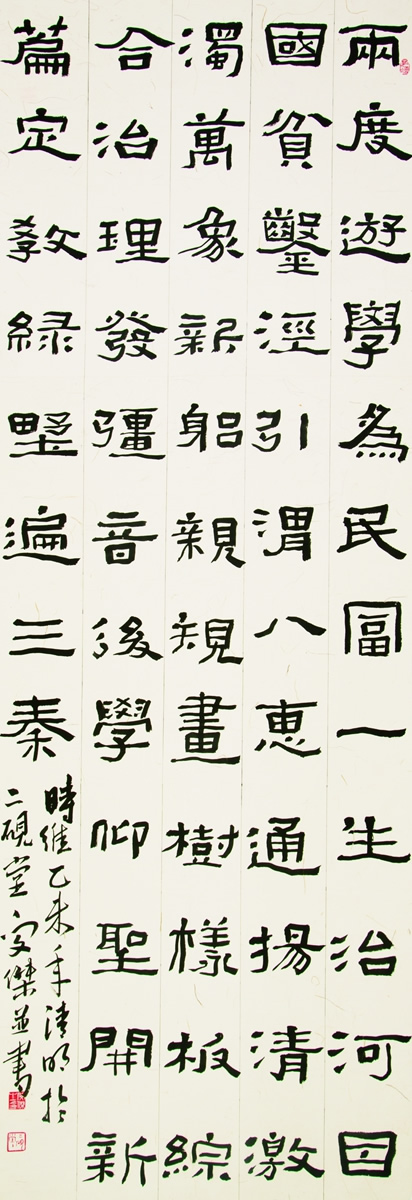 兩度遊學為民富一生治河因
國貧鑿涇引渭八惠通揚清激
濁萬象新躳親規畫樹樣板綜
合治理發彊音後學仰聖開新
篇定教緑野遍三秦
時維乙未年清明於
二硯堂傑並書